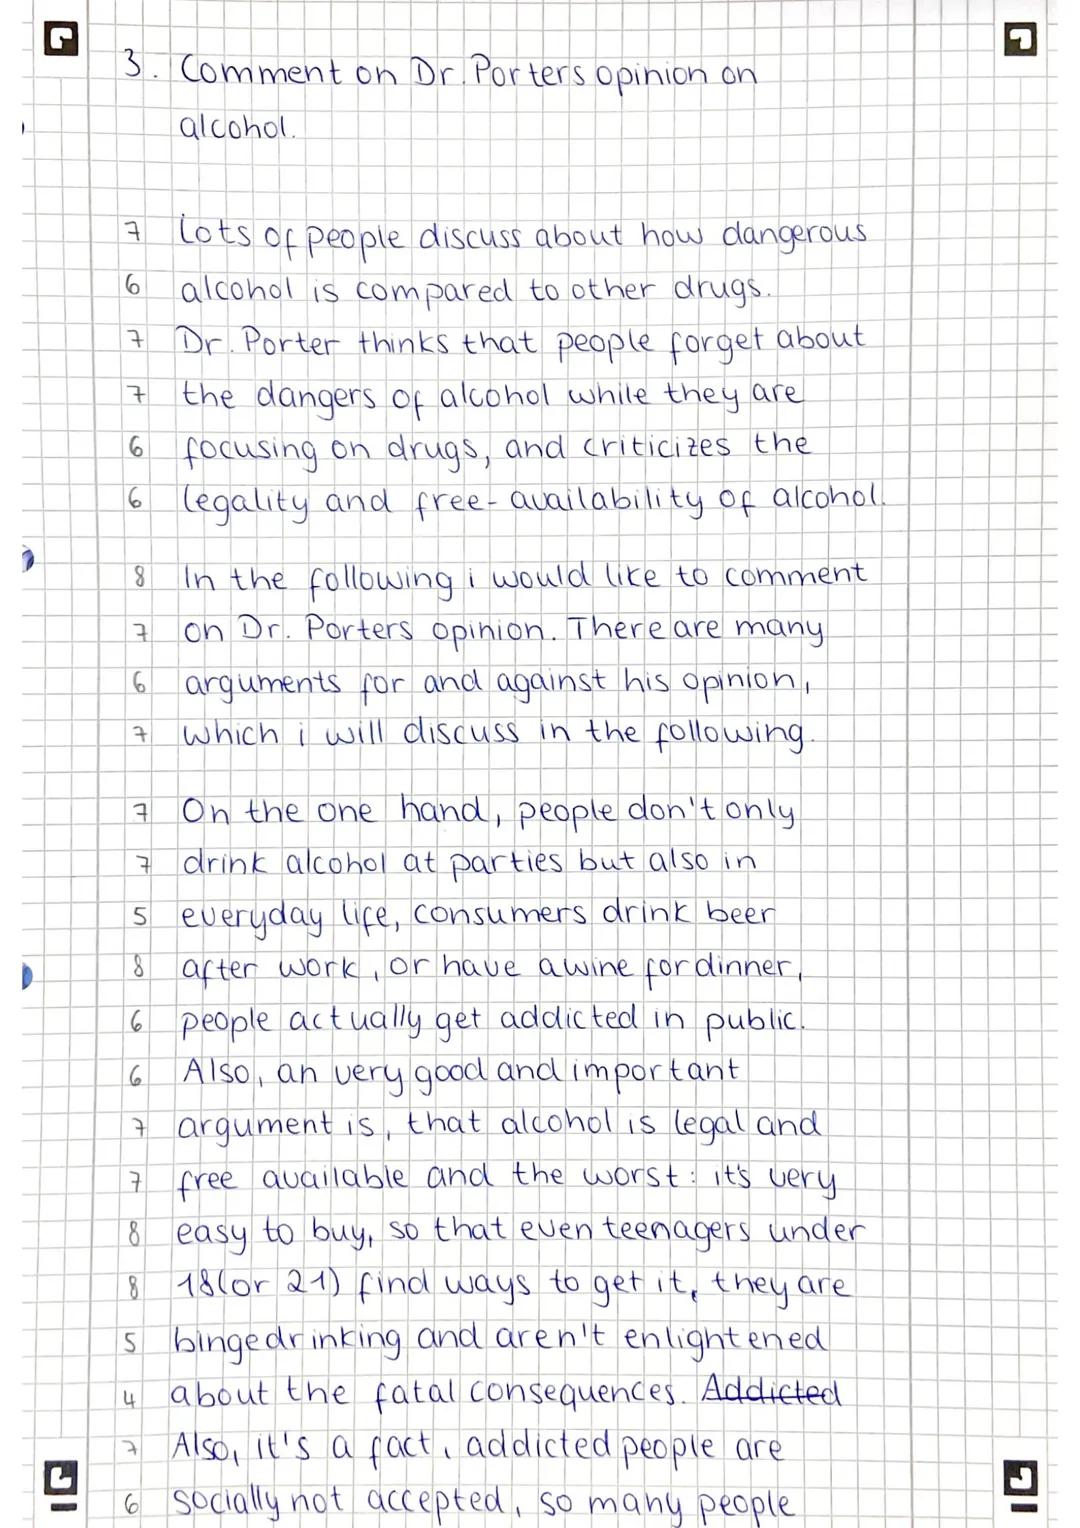 3. Comment on Dr. Porters opinion on
alcohol.
7 Lots of people discuss about how dangerous
6 alcohol is compared to other drugs.
7 Dr. Porter thinks that people forget about
7 the dangers of alcohol while they are
6 focusing on drugs, and criticizes the
6 legality and free-availability of alcohol.
8 In the following i would like to comment
7 on Dr. Porters opinion. There are many
6 arguments for and against his opinion,
7 which i will discuss in the following.
7 On the one hand, people don't only
7 drink alcohol at parties but also in
5 everyday life, consumers drink beer
8 after work, or have a wine for dinner,
6 people actually get addicted in public.
6 Also, an very good and important
7 argument is, that alcohol is legal and
7 free available and the worst: it's very
8 easy to buy, so that even teenagers under
8 18(or 21) find ways to get it, they are
5 bingedrinking and aren't enlightened
4 about the fatal consequences. Addicted
7 Also, it's a fact, addicted people are
6 socially not accepted, so many people